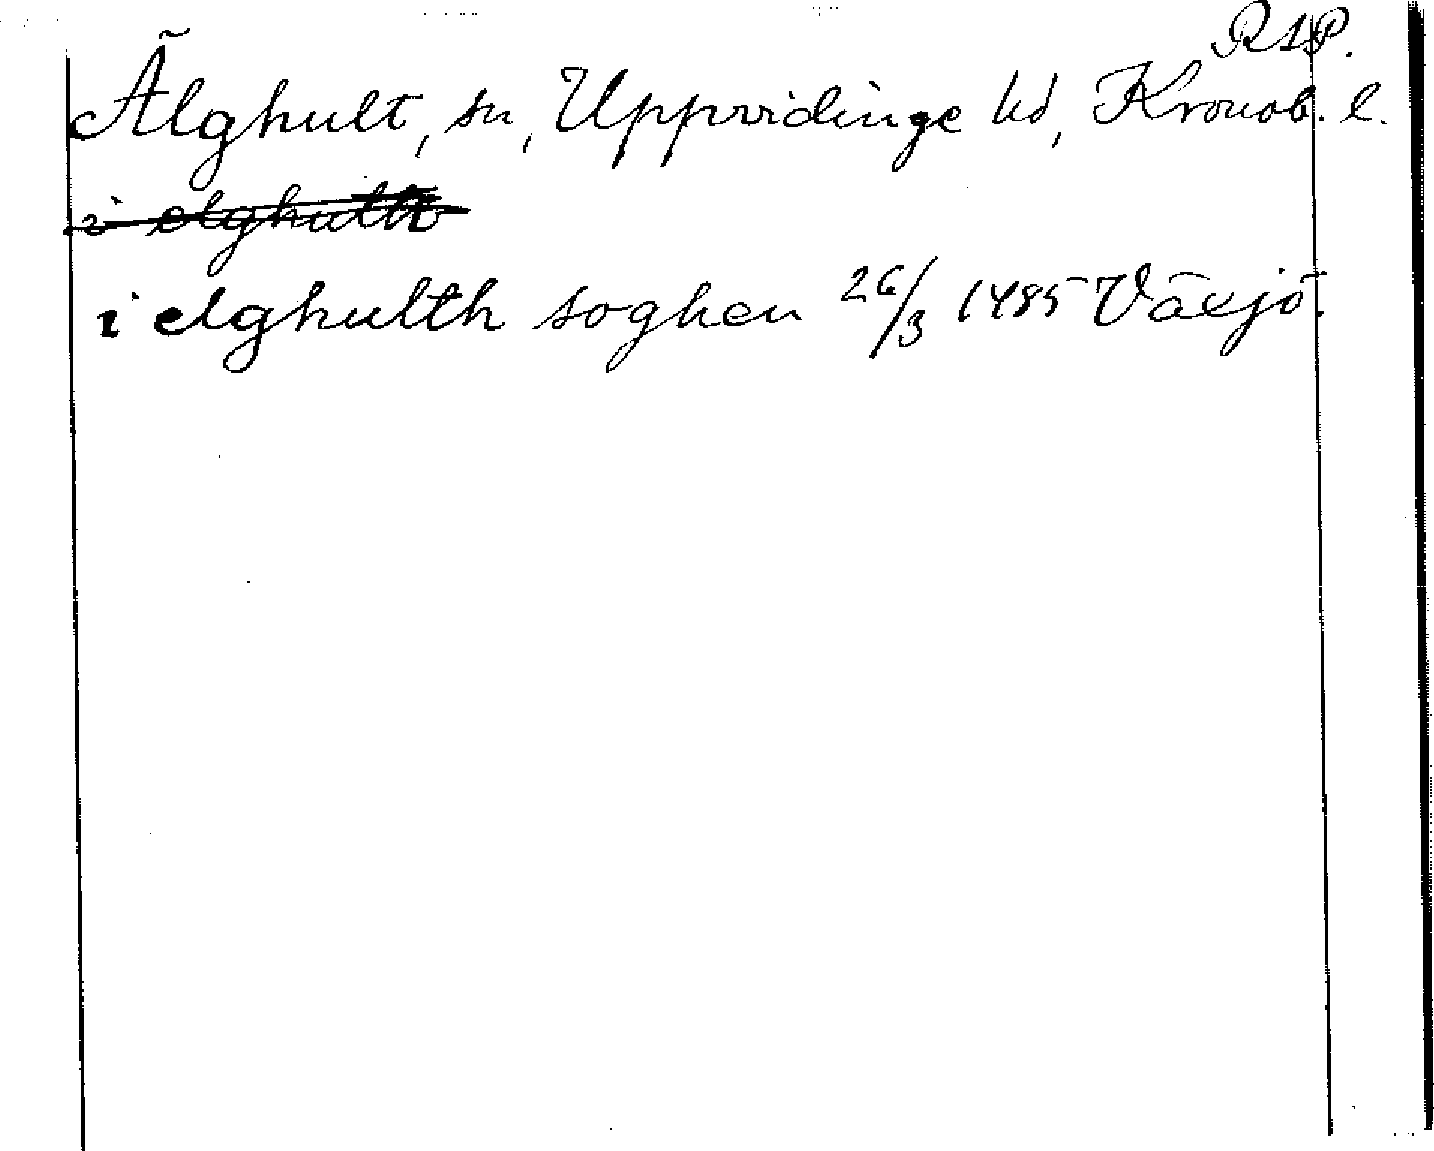 RAP.
Älghult, sn, Uppvidinge hd, Kronob. l.
i elghulth
i elghulth soghen 26/3 1485 Växjö.